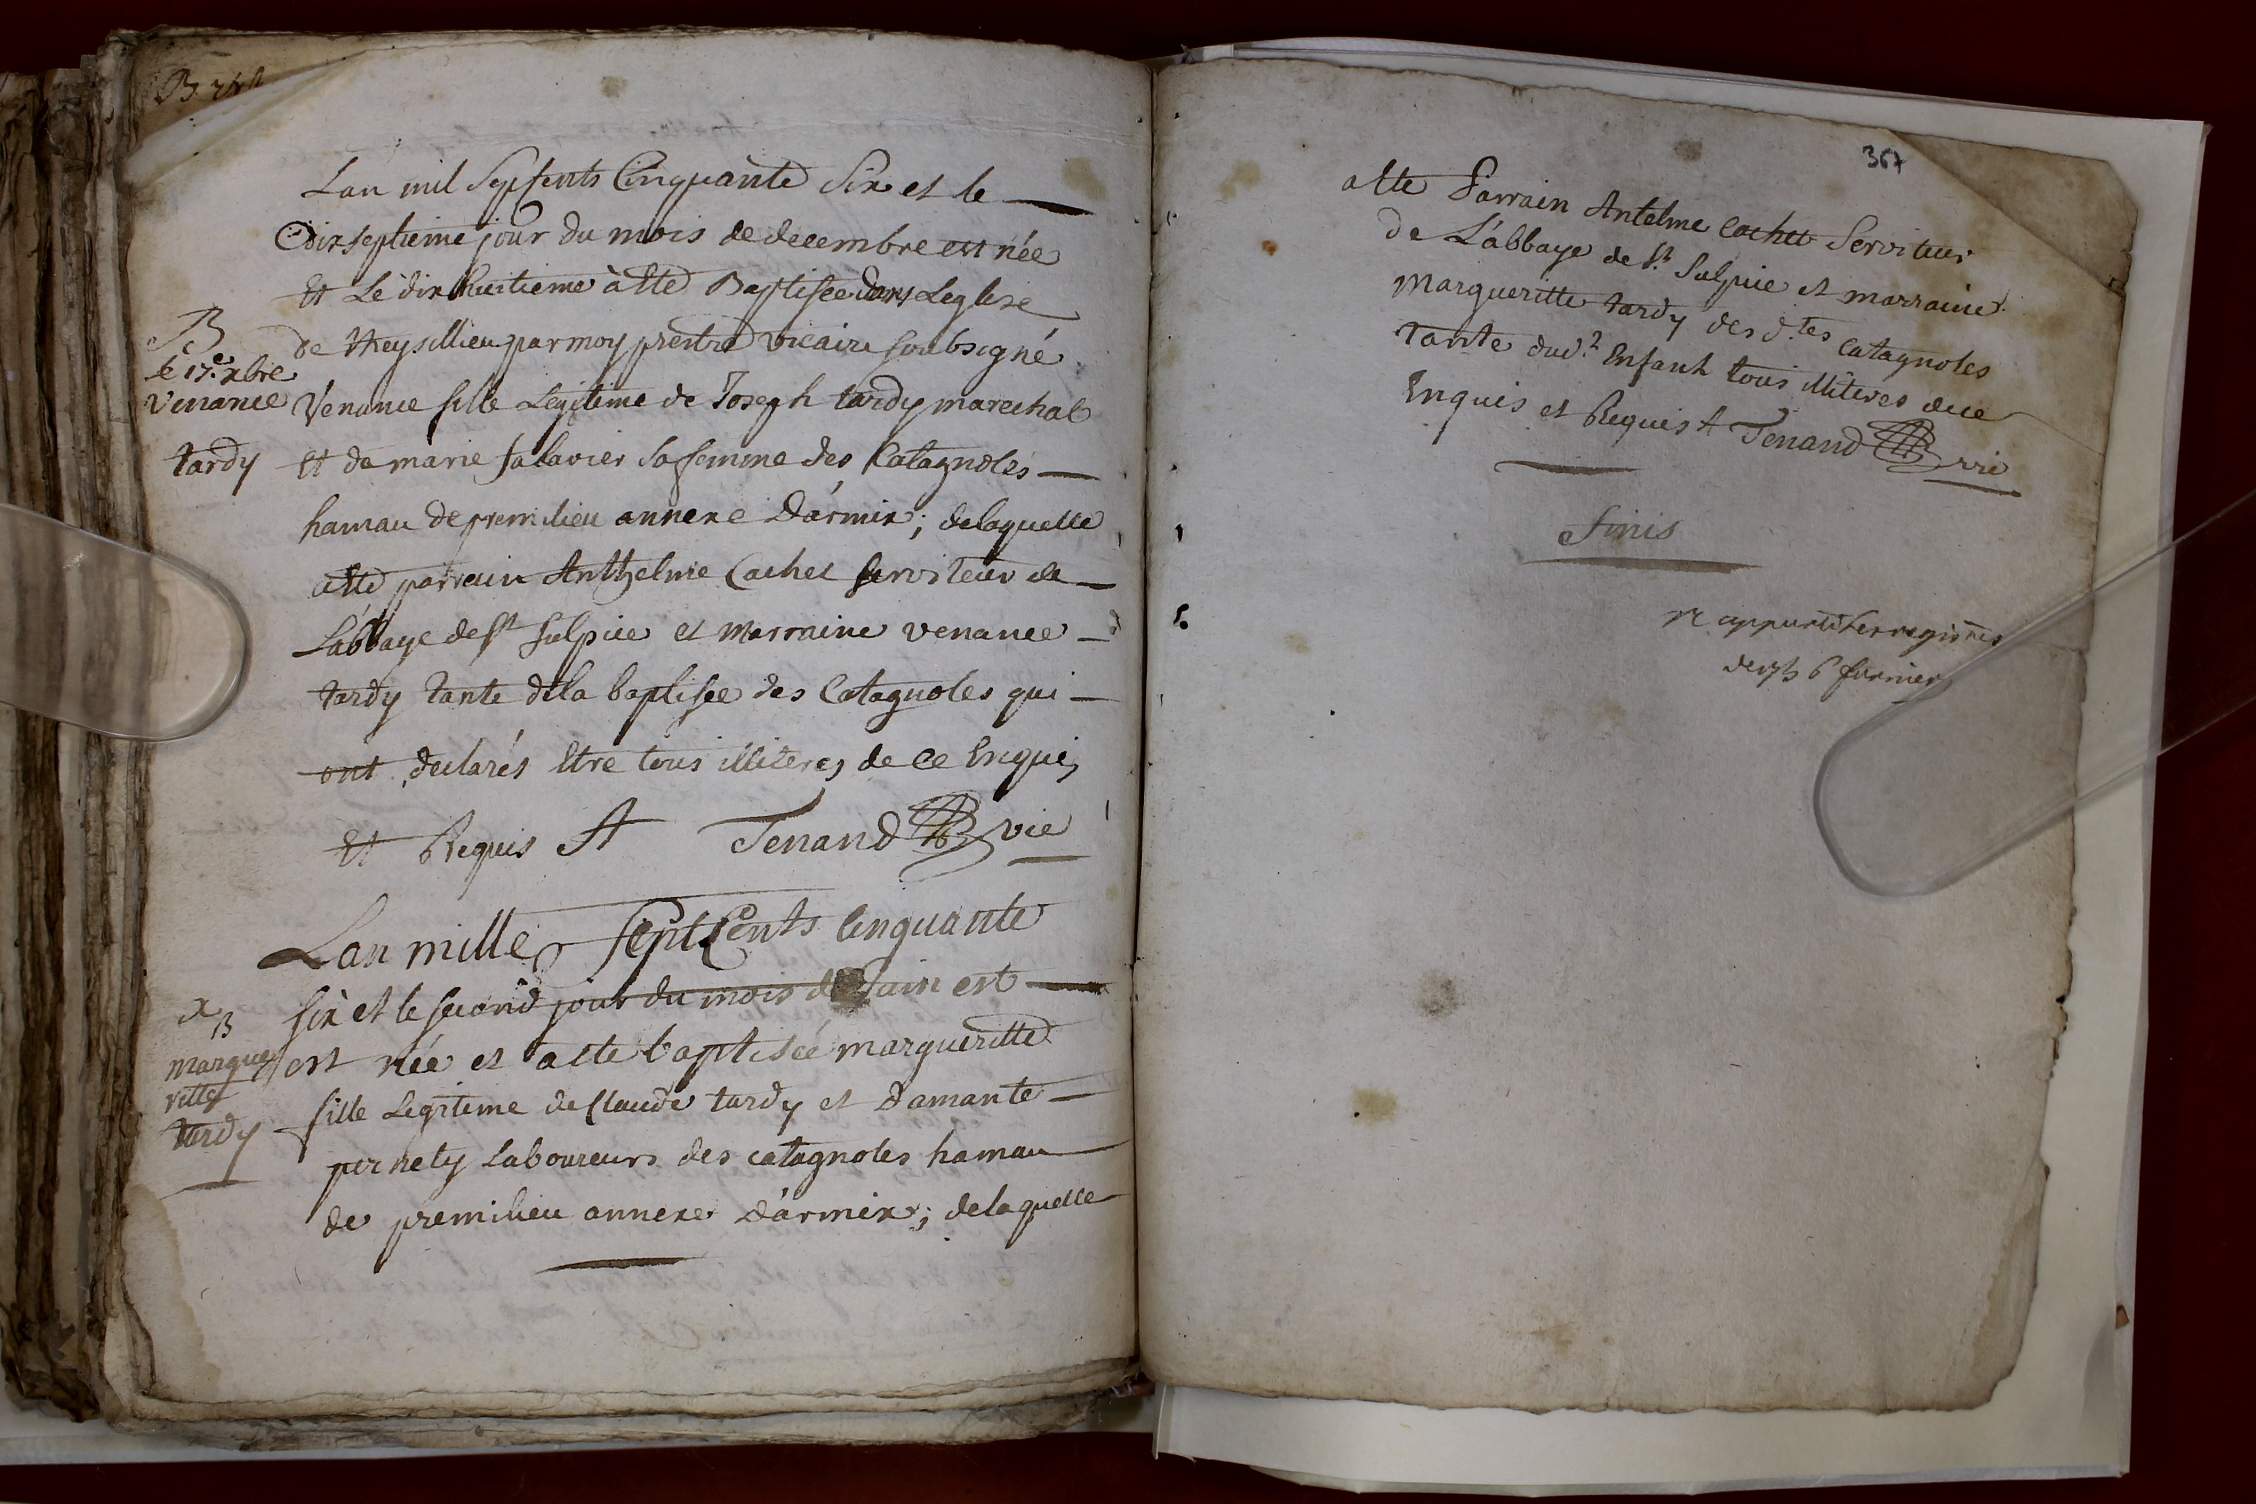 Lan mil Sepcents Cinquante Six et le
dixseptieme jour du mois de decembre est née
et Le dixhuitieme àétté Baptisée dans Leglise
de theysillieu par moy prestre vicaire soubsigné
B
le 17.e xbre
Venance
tardy
Venance fille Legitime de Joseph tardy marechal
et de marie salavier sa femme des Catagnoles
hamau de premilieu annexe D'armix; delaquelle
aétté parrain Anthelme Cachet serviteur de
L'abbaye de st sulpice et marraine venance
tardy tante dela baptisée des Catagnoles qui
ont declarés Etre tous illiteres de ce Enquis
et Requis A Tenand vic
Lan mille septcents Cinquante
six et le second jour du mois de Juin est
x
B
Margue
ritte
tardy
est née et aétté baptisée margueritte
fille Legitime de Claude tardy et D'amante
pernety Laboureurs des catagnoles hamau
de premilieu annexe D'armix; delaquelle
367
aétté Parrain Antelme Cachet Serviteur
de L'abbaye de st. Sulpice et marraine
Margueritte tardy des d.tes Catagnoles
tante dud.t Enfant tous illiteres dece
Enquis et Requis A Tenand vic
finis